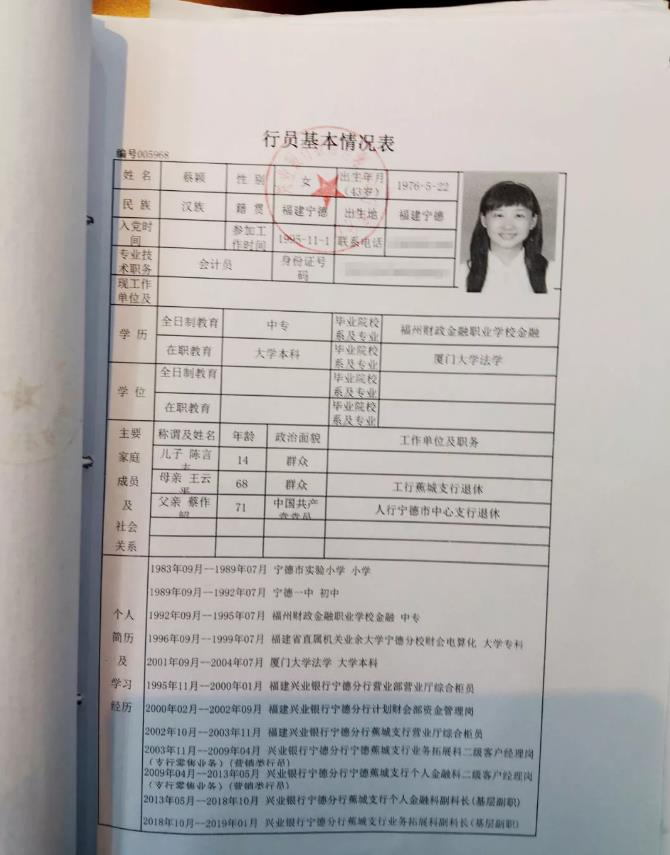 行员基本情况表
编号005968
姓 名 蔡颖 性 别 女 出生年月（43岁） 1976-5-22
民 族 汉族 籍 贯 福建宁德 出生地 福建宁德
入党时间 参加工作时间 1995-11-1 联系电话
专业技术职务 会计员 身份证号码
现工作单位及
学 历 全日制教育 中专 毕业院校系及专业 福州财政金融职业学校金融
在职教育 大学本科 毕业院校系及专业 厦门大学法学
学 位 全日制教育 毕业院校系及专业
在职教育 毕业院校系及专业
主要家庭成员及社会关系 称谓及姓名 年龄 政治面貌 工作单位及职务
儿子 陈言 14 群众
母亲 王云 68 群众 工行蕉城支行退休
父亲 蔡作 71 中国共产 人行宁德市中心支行退休
个人简历及学习经历
1983年09月--1989年07月 宁德市实验小学 小学
1989年09月--1992年07月 宁德一中 初中
1992年09月--1995年07月 福州财政金融职业学校金融 中专
1996年09月--1999年07月 福建省直属机关业余大学宁德分校财会电算化 大学专科
2001年09月--2004年07月 厦门大学法学 大学本科
1995年11月--2000年01月 福建兴业银行宁德分行营业部营业厅综合柜员
2000年02月--2002年09月 福建兴业银行宁德分行计划财会部资金管理岗
2002年10月--2003年11月 福建兴业银行宁德分行蕉城支行营业厅综合柜员
2003年11月--2009年04月 兴业银行宁德分行宁德蕉城支行业务拓展科二级客户经理岗
（支行零售业务）（营销类行员）
2009年04月--2013年05月 兴业银行宁德分行宁德蕉城支行个人金融科二级客户经理岗
（支行零售业务）（营销类行员）
2013年05月--2018年10月 兴业银行宁德分行蕉城支行个人金融科副科长(基层副职)
2018年10月--2019年01月 兴业银行宁德分行蕉城支行业务拓展科副科长(基层副职)